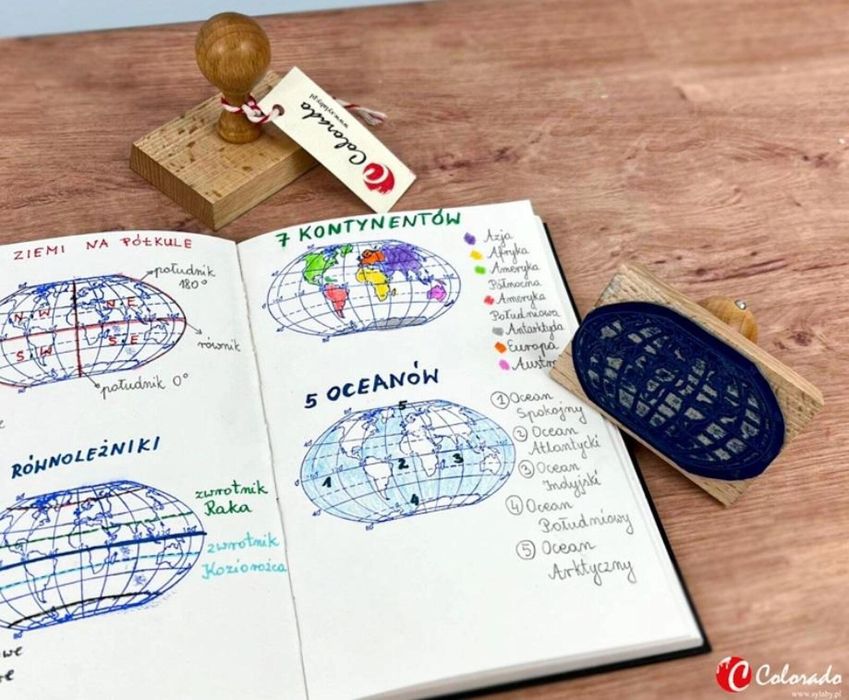 Colorado
www.sylaby.pl
ZIEMI NA PÓŁKULE
południk
180°
N.W
N.E
S.W
S.E
równik
południk 0°
RÓWNOLEŻNIKI
zwrotnik
Raka
zwrotnik
Koziorożca
7 KONTYNENTÓW
Azja
Afryka
Ameryka
Północna
Ameryka
Południowa
Antarktyda
Europa
Austr
5 OCEANÓW
5
1
2
3
4
1 Ocean
Spokojny
2 Ocean
Atlantycki
3 Ocean
Indyjski
4 Ocean
Południowy
5 Ocean
Arktyczny
Colorado
www.sylaby.pl